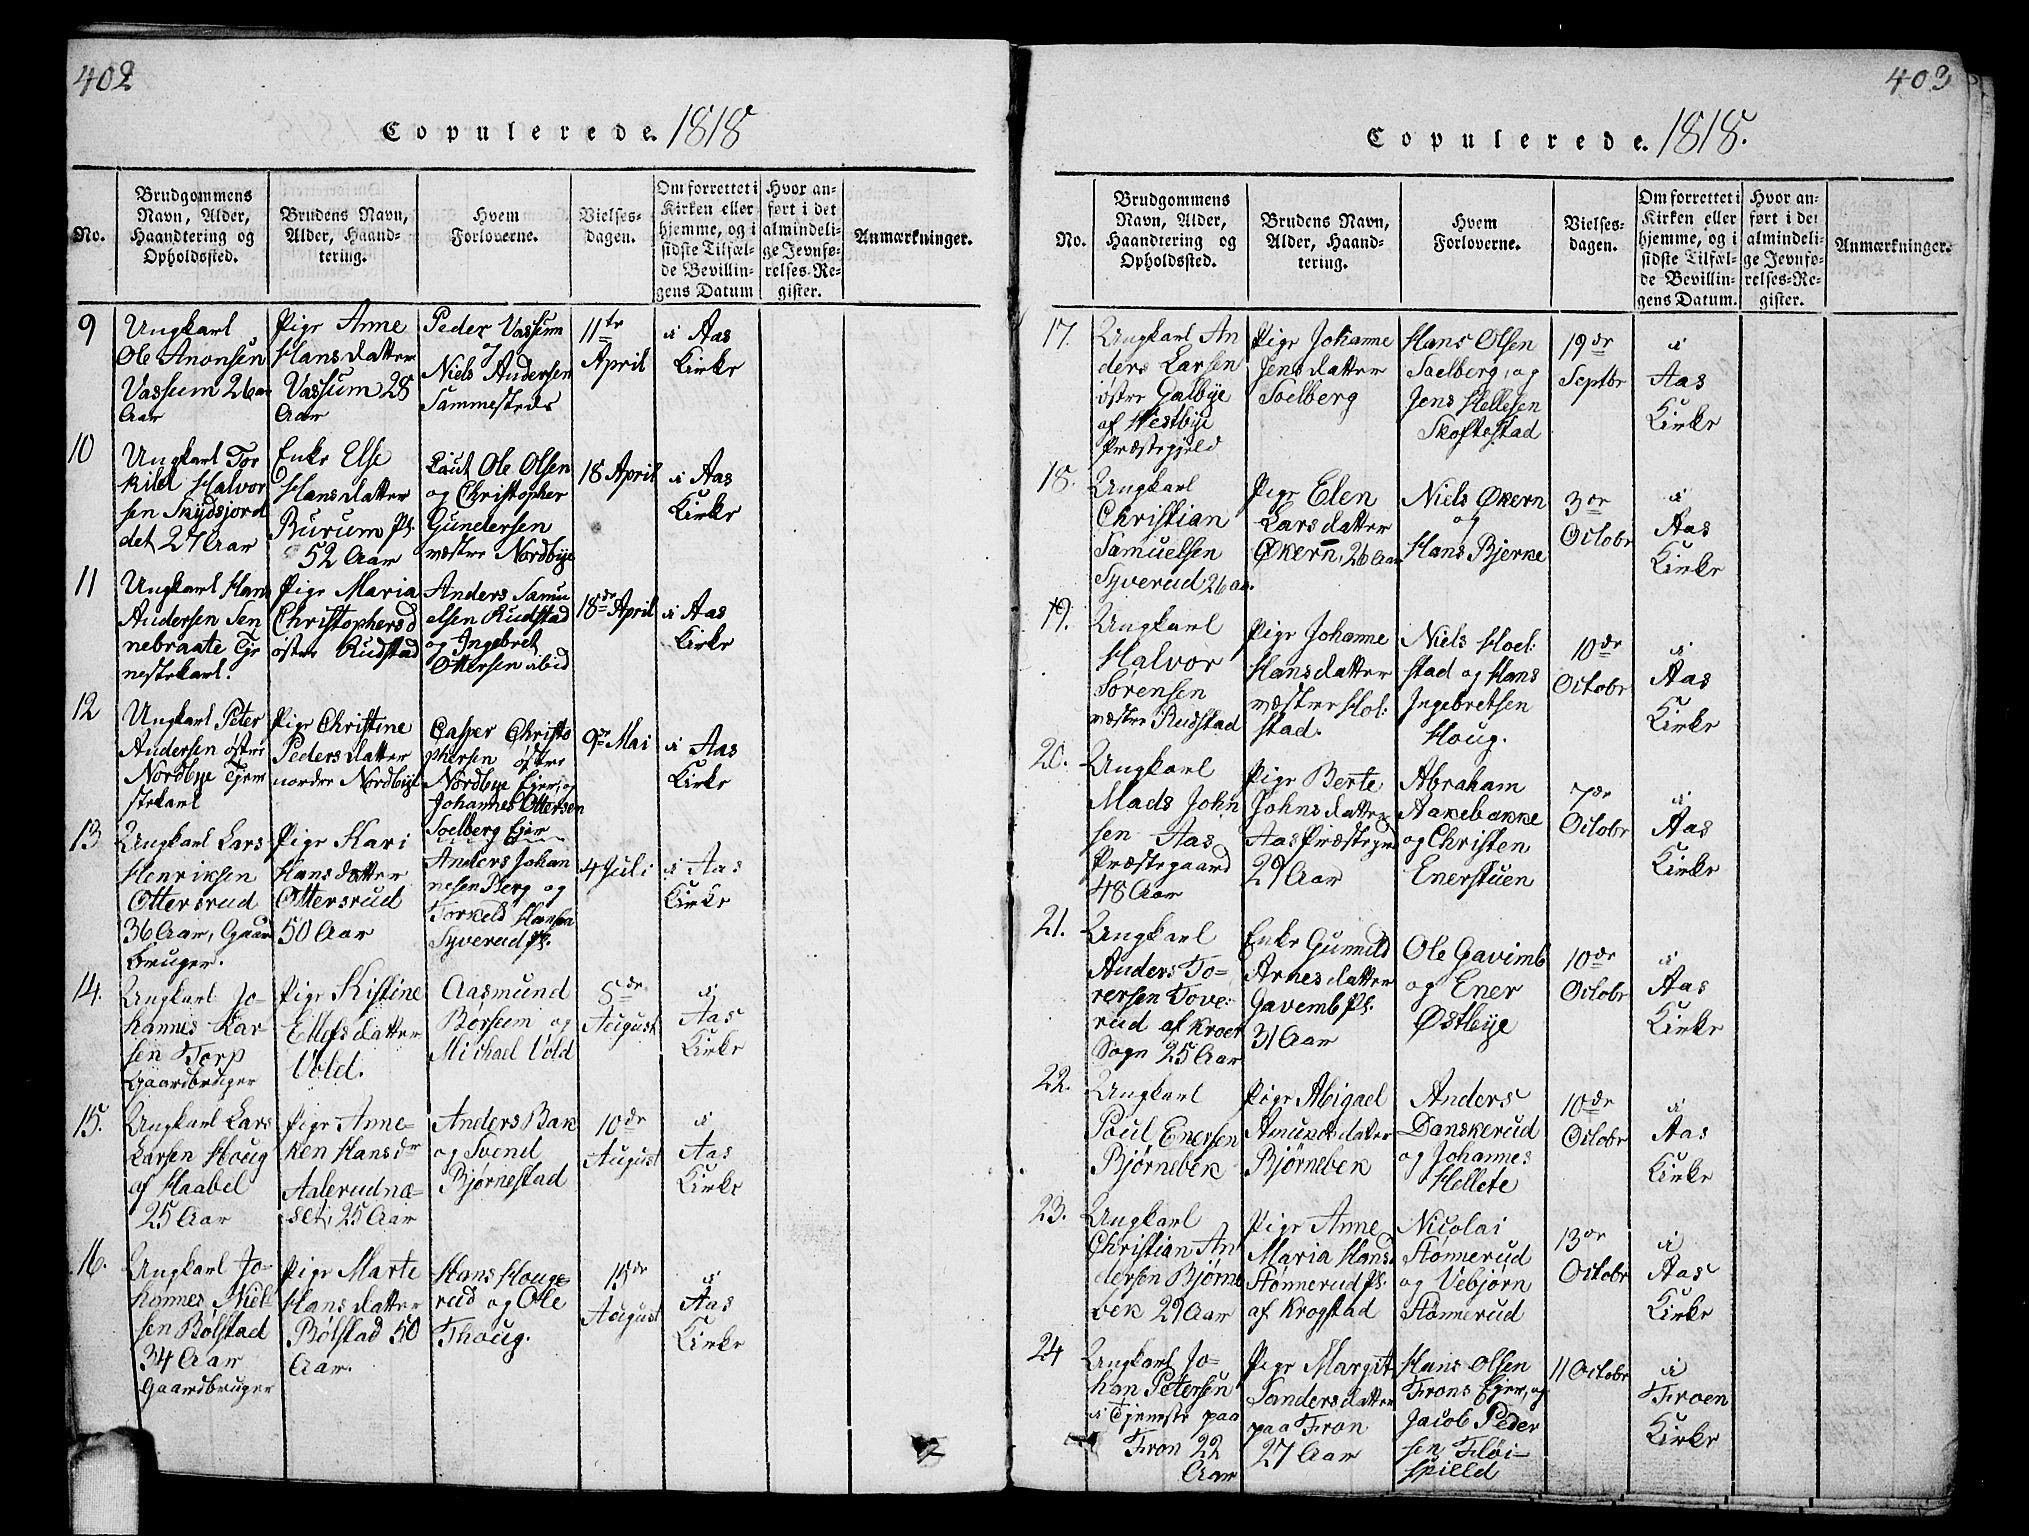 402
Copulerede. 1818
No.
Brudgommens
Navn, Alder,
Haandtering og
Opholdssted.
Brudens Navn,
Alder, Haand-
tering.
Hvem
Forloverne.
Vielses-
dagen.
Om forrettet i
Kirken eller
hjemme, og i
sidste Tilfæl-
de Bevillin-
gens Datum
Hvor an-
ført i det
almindeli-
ge Jevnfø-
relses-Re-
gister.
Anmærkninger.
9
Ungkarl
Ole Anonsen
Vassum 26 aa
Aar
Pige Anne
Hansdatter
Vassum 28
Aar
Peder Vassum
og
Niels Andersen
Sammesteds
11te
April
i Aas
Kirke
10
Ungkarl Tor
kild Halvor
sen Skydsjord
det 27 Aar
Enke Else
Hansdatter
Burum Pl.
52 Aar
Laut Ole Olsen
og Christopher
Gundersen
væstre Nordbye
18 April
i Aas
Kirke
11
Ungkarl Hans
Andersen Sen
nebraate Tje
nestekarl.
Pige Maria
Christophersd
østre Rudstad
Anders Samu
elsen Rudstad
og Ingebret
Ottersen ibid
18de April
i Aas
Kirke
12
Ungkarl Peter
Andersen østre
Nordbye Tjene
stekarl
Pige Christine
Pedersdatter
nordre Nordbye
Casper Christo
phersen østre
Nordbye Ejer, og
Johannes Ottersen
Soelberg Ejer
9de Mai
i Aas
Kirke
13
Ungkarl Lars
Henriksen
Ottersrud
36 Aar, Gaard
bruger.
Pige Kari
Hansdatter
Ottersrud
50 Aar
Anders Johan
nesen Berg og
Torkeld Hansen
Syverud Pl.
4 Juli
i Aas
Kirke
14.
Ungkarl Jo-
hannes Lar
sen Torp
Gaardbruger
Pige Kistine
Ellefsdatter
Vold.
Aasmund
Borsum og
Michael Vold
5de
August
i
Aas
Kirke
15.
Ungkarl Lars
Larsen Houg
af Haabel
25 Aar
Pige Anne-
ken Hansdr
Aalerudnæ-
set, 25 Aar
Anders Bak
og Svend
Bjørnestad
10de
August
i
Aas
Kirke
16.
Ungkarl Jo-
hannes Niel
sen Bølstad
34 Aar
Gaardbruger
Pige Marte
Hansdatter
Bølstad 50
Aar.
Hans Houge-
rud og Ole
Thoug.
15de
August
i
Aas
Kirke
403
Copulerede. 1818.
No.
Brudgommens
Navn, Alder,
Haandtering og
Opholdssted.
Brudens Navn,
Alder, Haand-
tering.
Hvem
Forloverne.
Vielses-
dagen.
Om forrettet i
Kirken eller
hjemme, og i
sidste Tilfæl-
de Bevillin-
gens Datum.
Hvor an-
ført i det
almindeli-
ge Jevnfø-
relses-Re-
gister.
Anmærkninger.
17.
Ungkarl An
ders Larsen
østre Galbye
af Westbye
Præstegjeld
Pige Johanne
Jensdatter
Soelberg
Hans Olsen
Soelberg, og
Jens Hellesen
Skoftestad
19de
Septbr
i
Aas
Kirke
18.
Ungkarl
Christian
Samuelsen
Syverud 26 aa.
Pige Elen
Larsdatter
Økern, 26 Aar
Niels Økern
og
Hans Bjerke
3de
Octobr
i
Aas
Kirke
19.
Ungkarl
Halvor
Sørensen
væstre Rudstad
Pige Johanne
Hansdatter
væstre Hol:
stad.
Niels Hoel:
stad og Hans
Ingebretsen
Houg.
10de
Octobr
i
Aas
Kirke
20.
Ungkarl
Mads John
sen Aas
Præstegaard
48 Aar
Pige Berte
Johnsdatter
Aas Præstegrd
29 Aar
Abraham
Aakebakke
og Christen
Enerstuen
7de
Octobr
i
Aas
Kirke
21.
Ungkarl
Anders To-
rersen Tove:
rud af Kroer
Sogn 25 Aar
Enke Gunnild
Arnesdatter
Gavemb Pl.
31 Aar
Ole Gavimb
og Ener
Østbye
10de
Octobr
i
Aas
Kirke
22.
Ungkarl
Poul Enersen
Bjørnebek
Pige Abigael
Amundsdatter
Bjørnebek
Anders
Danskerud
og Johannes
Hellete
10de
Octobr
i
Aas
Kirke
23.
Ungkarl
Christian An
dersen Bjørne
bek 29 Aar
Pige Anne
Maria Hansd.
Stønnerud Pl.
af Krogstad
Nicolai
Stønnerud
og Vebjørn
Stønnerud
13de
Octobr
i
Aas
Kirke
24
Ungkarl Jo-
han Petersen
i Tjeneste paa
Fron 22
Aar
Pige Margit
Sandersdatter
paa Fron
27 Aar
Hans Olsen
Frons Ejer, og
Jacob Peder
sen Fløi-
spilld
11 Octobr
i
Froen
Kirke